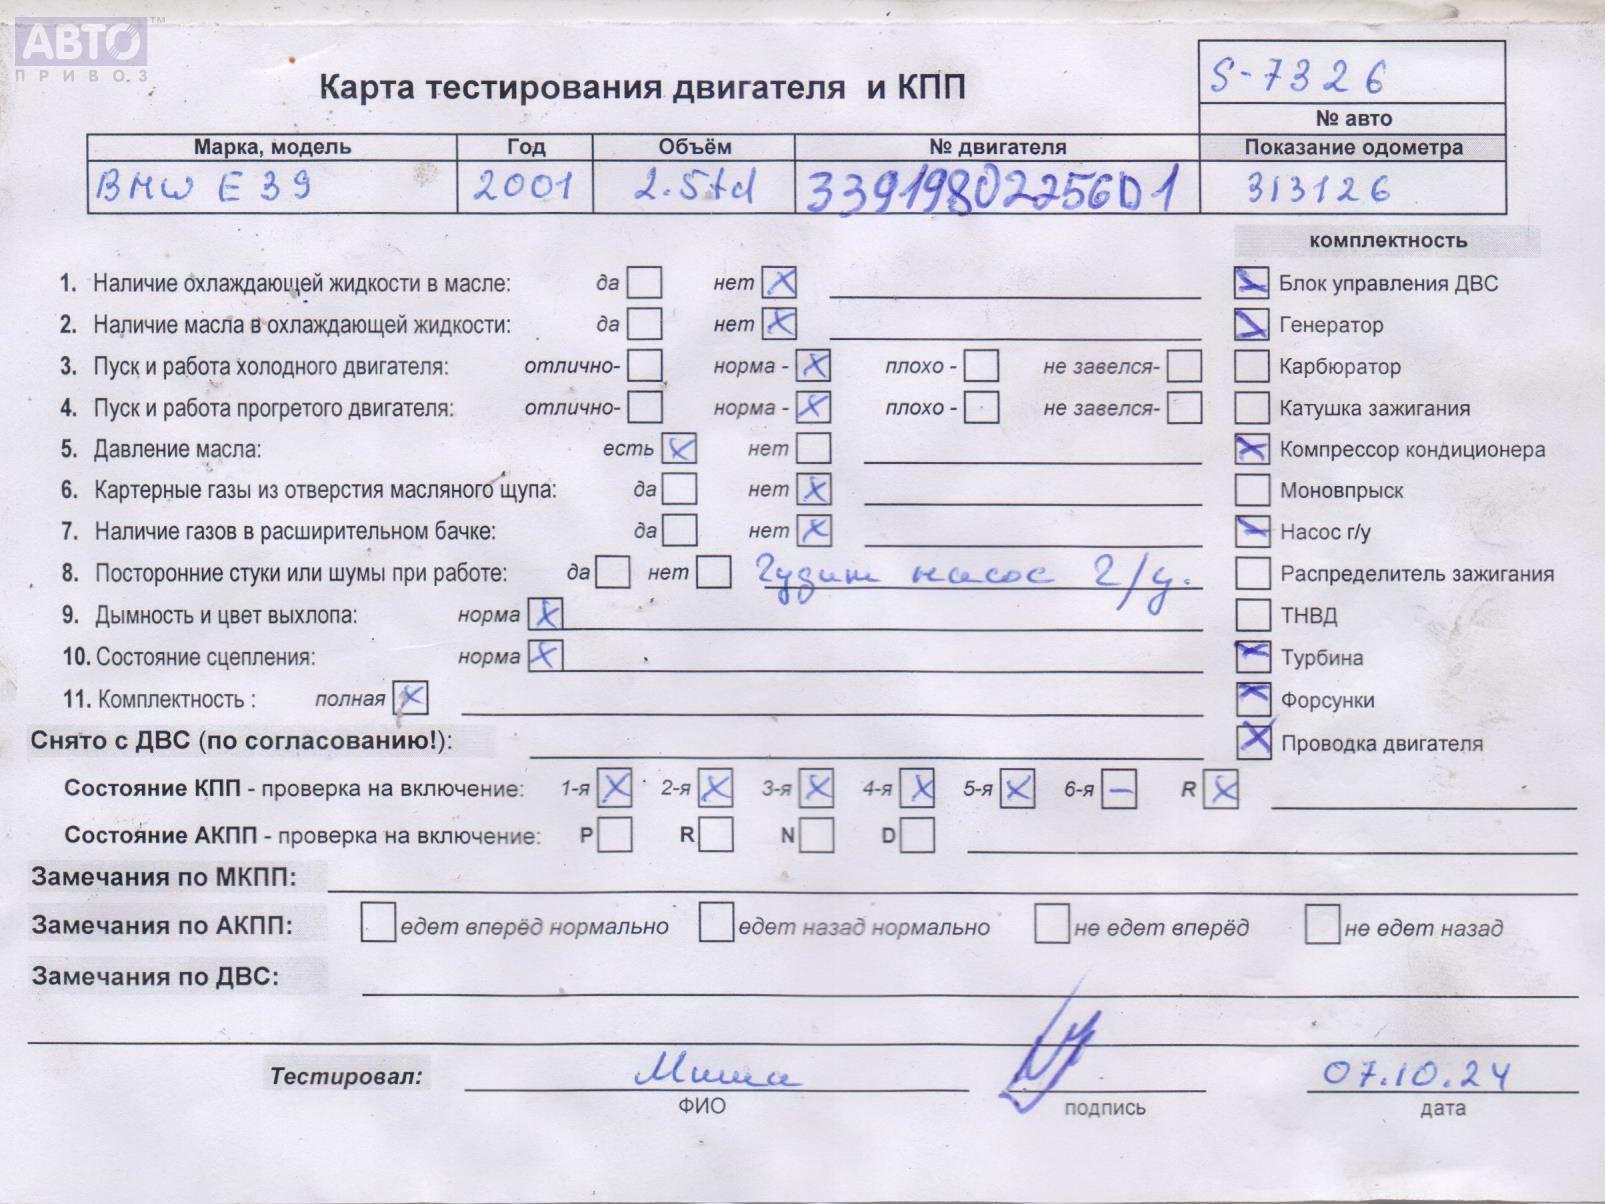 АВТО™
ПРИВОЗ
Карта тестирования двигателя и КПП
S-7326
№ авто
Марка, модель Год Объём № двигателя Показание одометра
BMW E39 2001 2.5td 33919802256D1 313126
комплектность
1. Наличие охлаждающей жидкости в масле: да нет X Блок управления ДВС
2. Наличие масла в охлаждающей жидкости: да нет X Генератор
3. Пуск и работа холодного двигателя: отлично- норма - X плохо - не завелся- Карбюратор
4. Пуск и работа прогретого двигателя: отлично- норма - X плохо - не завелся- Катушка зажигания
5. Давление масла: есть X нет X Компрессор кондиционера
6. Картерные газы из отверстия масляного щупа: да нет X Моновпрыск
7. Наличие газов в расширительном бачке: да нет X Насос г/у
8. Посторонние стуки или шумы при работе: да нет Гудит насос г/у. Распределитель зажигания
9. Дымность и цвет выхлопа: норма X ТНВД
10. Состояние сцепления: норма X Турбина
11. Комплектность : полная X Форсунки
Снято с ДВС (по согласованию!): X Проводка двигателя
Состояние КПП - проверка на включение: 1-я X 2-я X 3-я X 4-я X 5-я X 6-я – R X
Состояние АКПП - проверка на включение: P R N D
Замечания по МКПП:
Замечания по АКПП: едет вперёд нормально едет назад нормально не едет вперёд не едет назад
Замечания по ДВС:
Тестировал: Миша 07.10.24
ФИО подпись дата